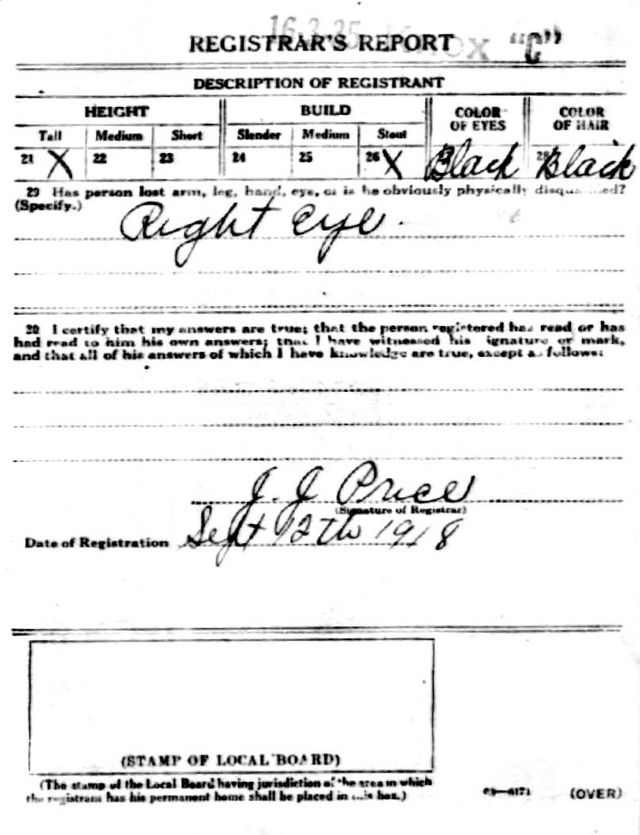 16.3.35 "C"
REGISTRAR'S REPORT
DESCRIPTION OF REGISTRANT
HEIGHT BUILD COLOR OF EYES COLOR OF HAIR
Tall Medium Short Slender Medium Stout
21 X 22 23 24 25 26 X Black 28 Black
29 Has person lost arm, leg, hand, eye, or is he obviously physically disqualified?
(Specify.)
Right eye.
30 I certify that my answers are true; that the person registered has read or has
had read to him his own answers; that I have witnessed his signature or mark,
and that all of his answers of which I have knowledge are true, except as follows:
J. J Price
(Signature of Registrar)
Date of Registration Sept 12th 1918
(STAMP OF LOCAL BOARD)
(The stamp of the Local Board having jurisdiction of the area in which
the registrant has his permanent home shall be placed in this box.)
03—6171 (OVER)